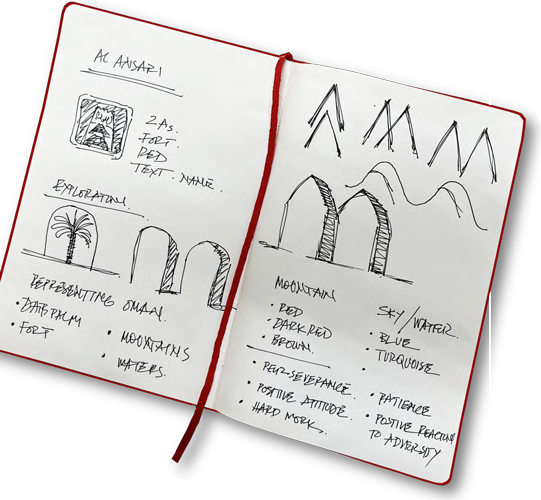 AL ANSARI
2 As.
FORT.
RED
TEXT. NAME.
EXPLORATION.
REPRESENTING OMAN.
• DATE PALM
• FORT
• MOUNTAINS
• WATERS.
MOUNTAIN
• RED
• DARK RED
• BROWN.
• PERSEVERANCE.
• POSITIVE ATTITUDE.
• HARD WORK.
SKY/WATER.
• BLUE
• TURQUOISE
• PATIENCE
• POSTIVE REACTION
TO ADVERSITY